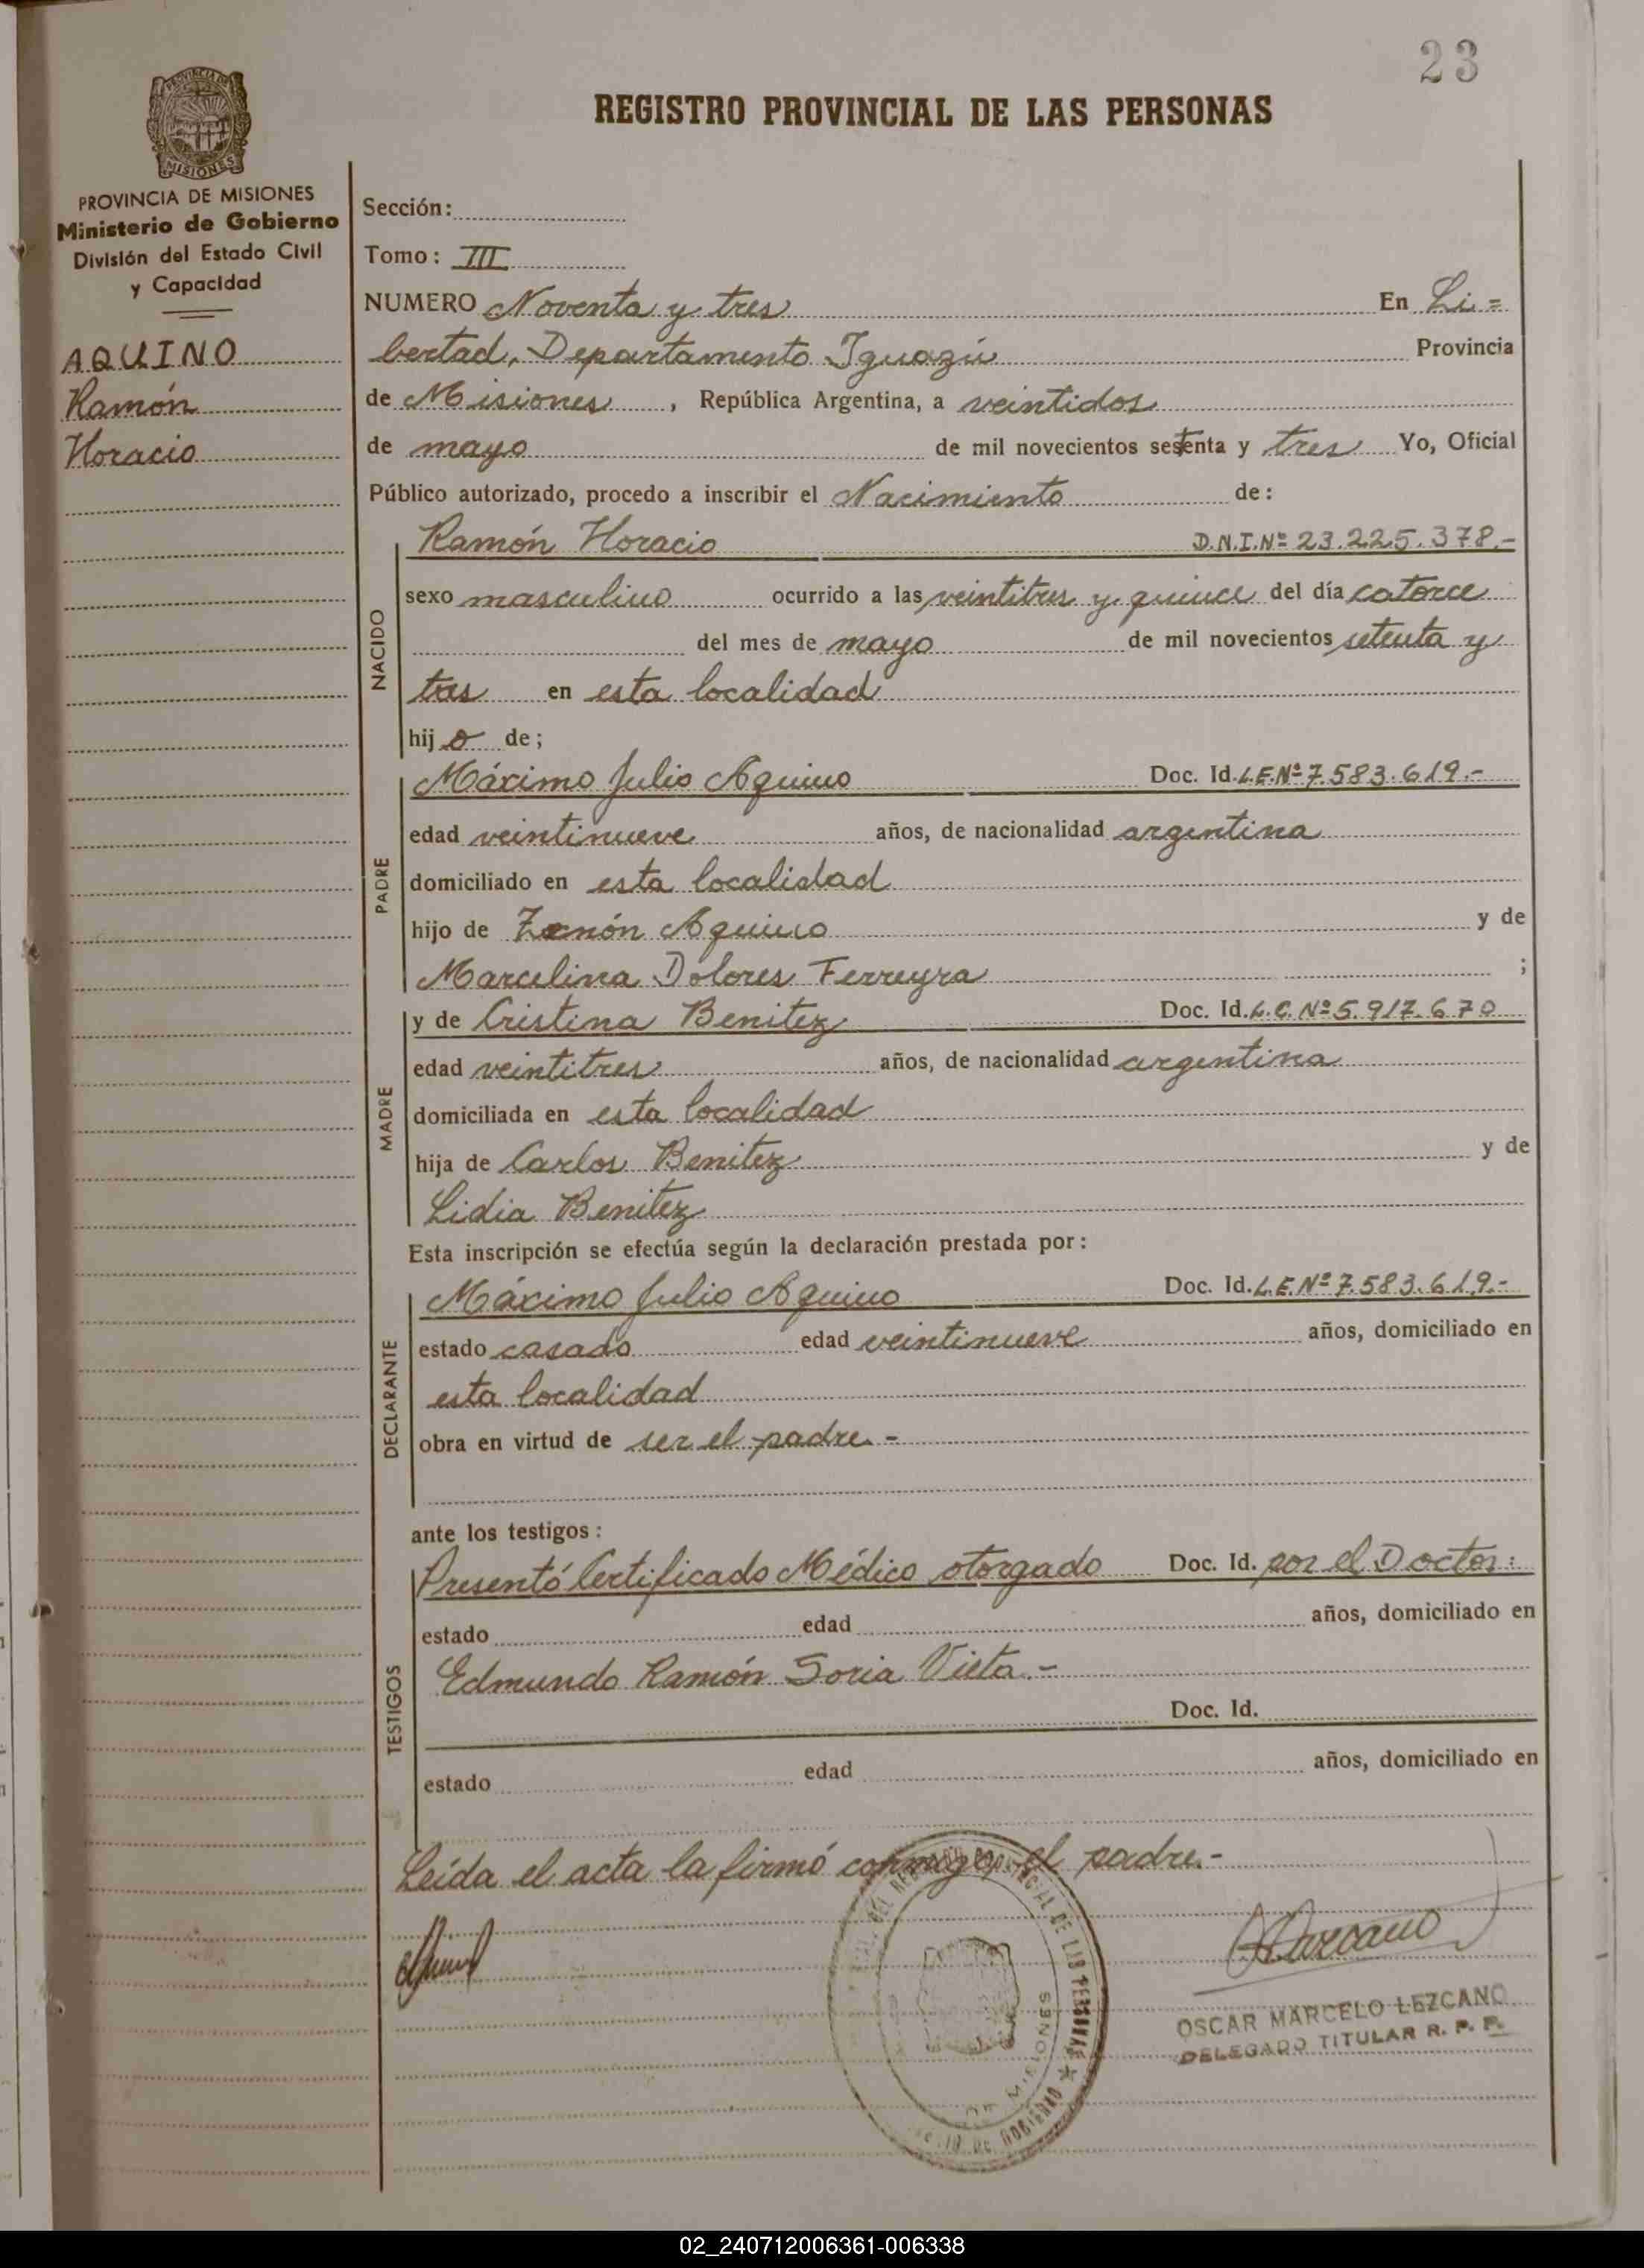 23
REGISTRO PROVINCIAL DE LAS PERSONAS
PROVINCIA DE MISIONES
PROVINCIA DE MISIONES
Ministerio de Gobierno
División del Estado Civil
y Capacidad
AQUINO
Ramón
Horacio
Sección:
Tomo: III
NUMERO Noventa y tres En Li=
bertad, Departamento Iguazú Provincia
de Misiones, República Argentina, a veintidos
de mayo de mil novecientos setenta y tres Yo, Oficial
Público autorizado, procedo a inscribir el Nacimiento de:
NACIDO
Ramón Horacio D.N.I.Nº 23.225.378.-
sexo masculino ocurrido a las veintitres y quince del día catorce
del mes de mayo de mil novecientos setenta y
tres en esta localidad
hijo de;
PADRE
Máximo Julio Aquino Doc. Id. L.E.Nº 7.583.619.-
edad veintinueve años, de nacionalidad argentina
domiciliado en esta localidad
hijo de Zenón Aquino y de
Marcelina Dolores Ferreyra ;
MADRE
y de Cristina Benitez Doc. Id. L.C. Nº 5.917.670
edad veintitres años, de nacionalidad argentina
domiciliada en esta localidad
hija de Carlos Benitez y de
Lidia Benitez
Esta inscripción se efectúa según la declaración prestada por:
DECLARANTE
Máximo Julio Aquino Doc. Id. L.E.Nº 7.583.619.-
estado casado edad veintinueve años, domiciliado en
esta localidad
obra en virtud de ser el padre.-
ante los testigos:
TESTIGOS
Presentó Certificado Médico otorgado Doc. Id. por el Doctor:
estado edad años, domiciliado en
Edmundo Ramón Soria Vieta.-
Doc. Id.
estado edad años, domiciliado en
Leída el acta la firmó conmigo, el padre.-
DEL REGISTRO PROVINCIAL DE LAS PERSONAS
DE MISIONES
DE GOBIERNO
OSCAR MARCELO LEZCANO
DELEGADO TITULAR R. P. P.
02_240712006361-006338